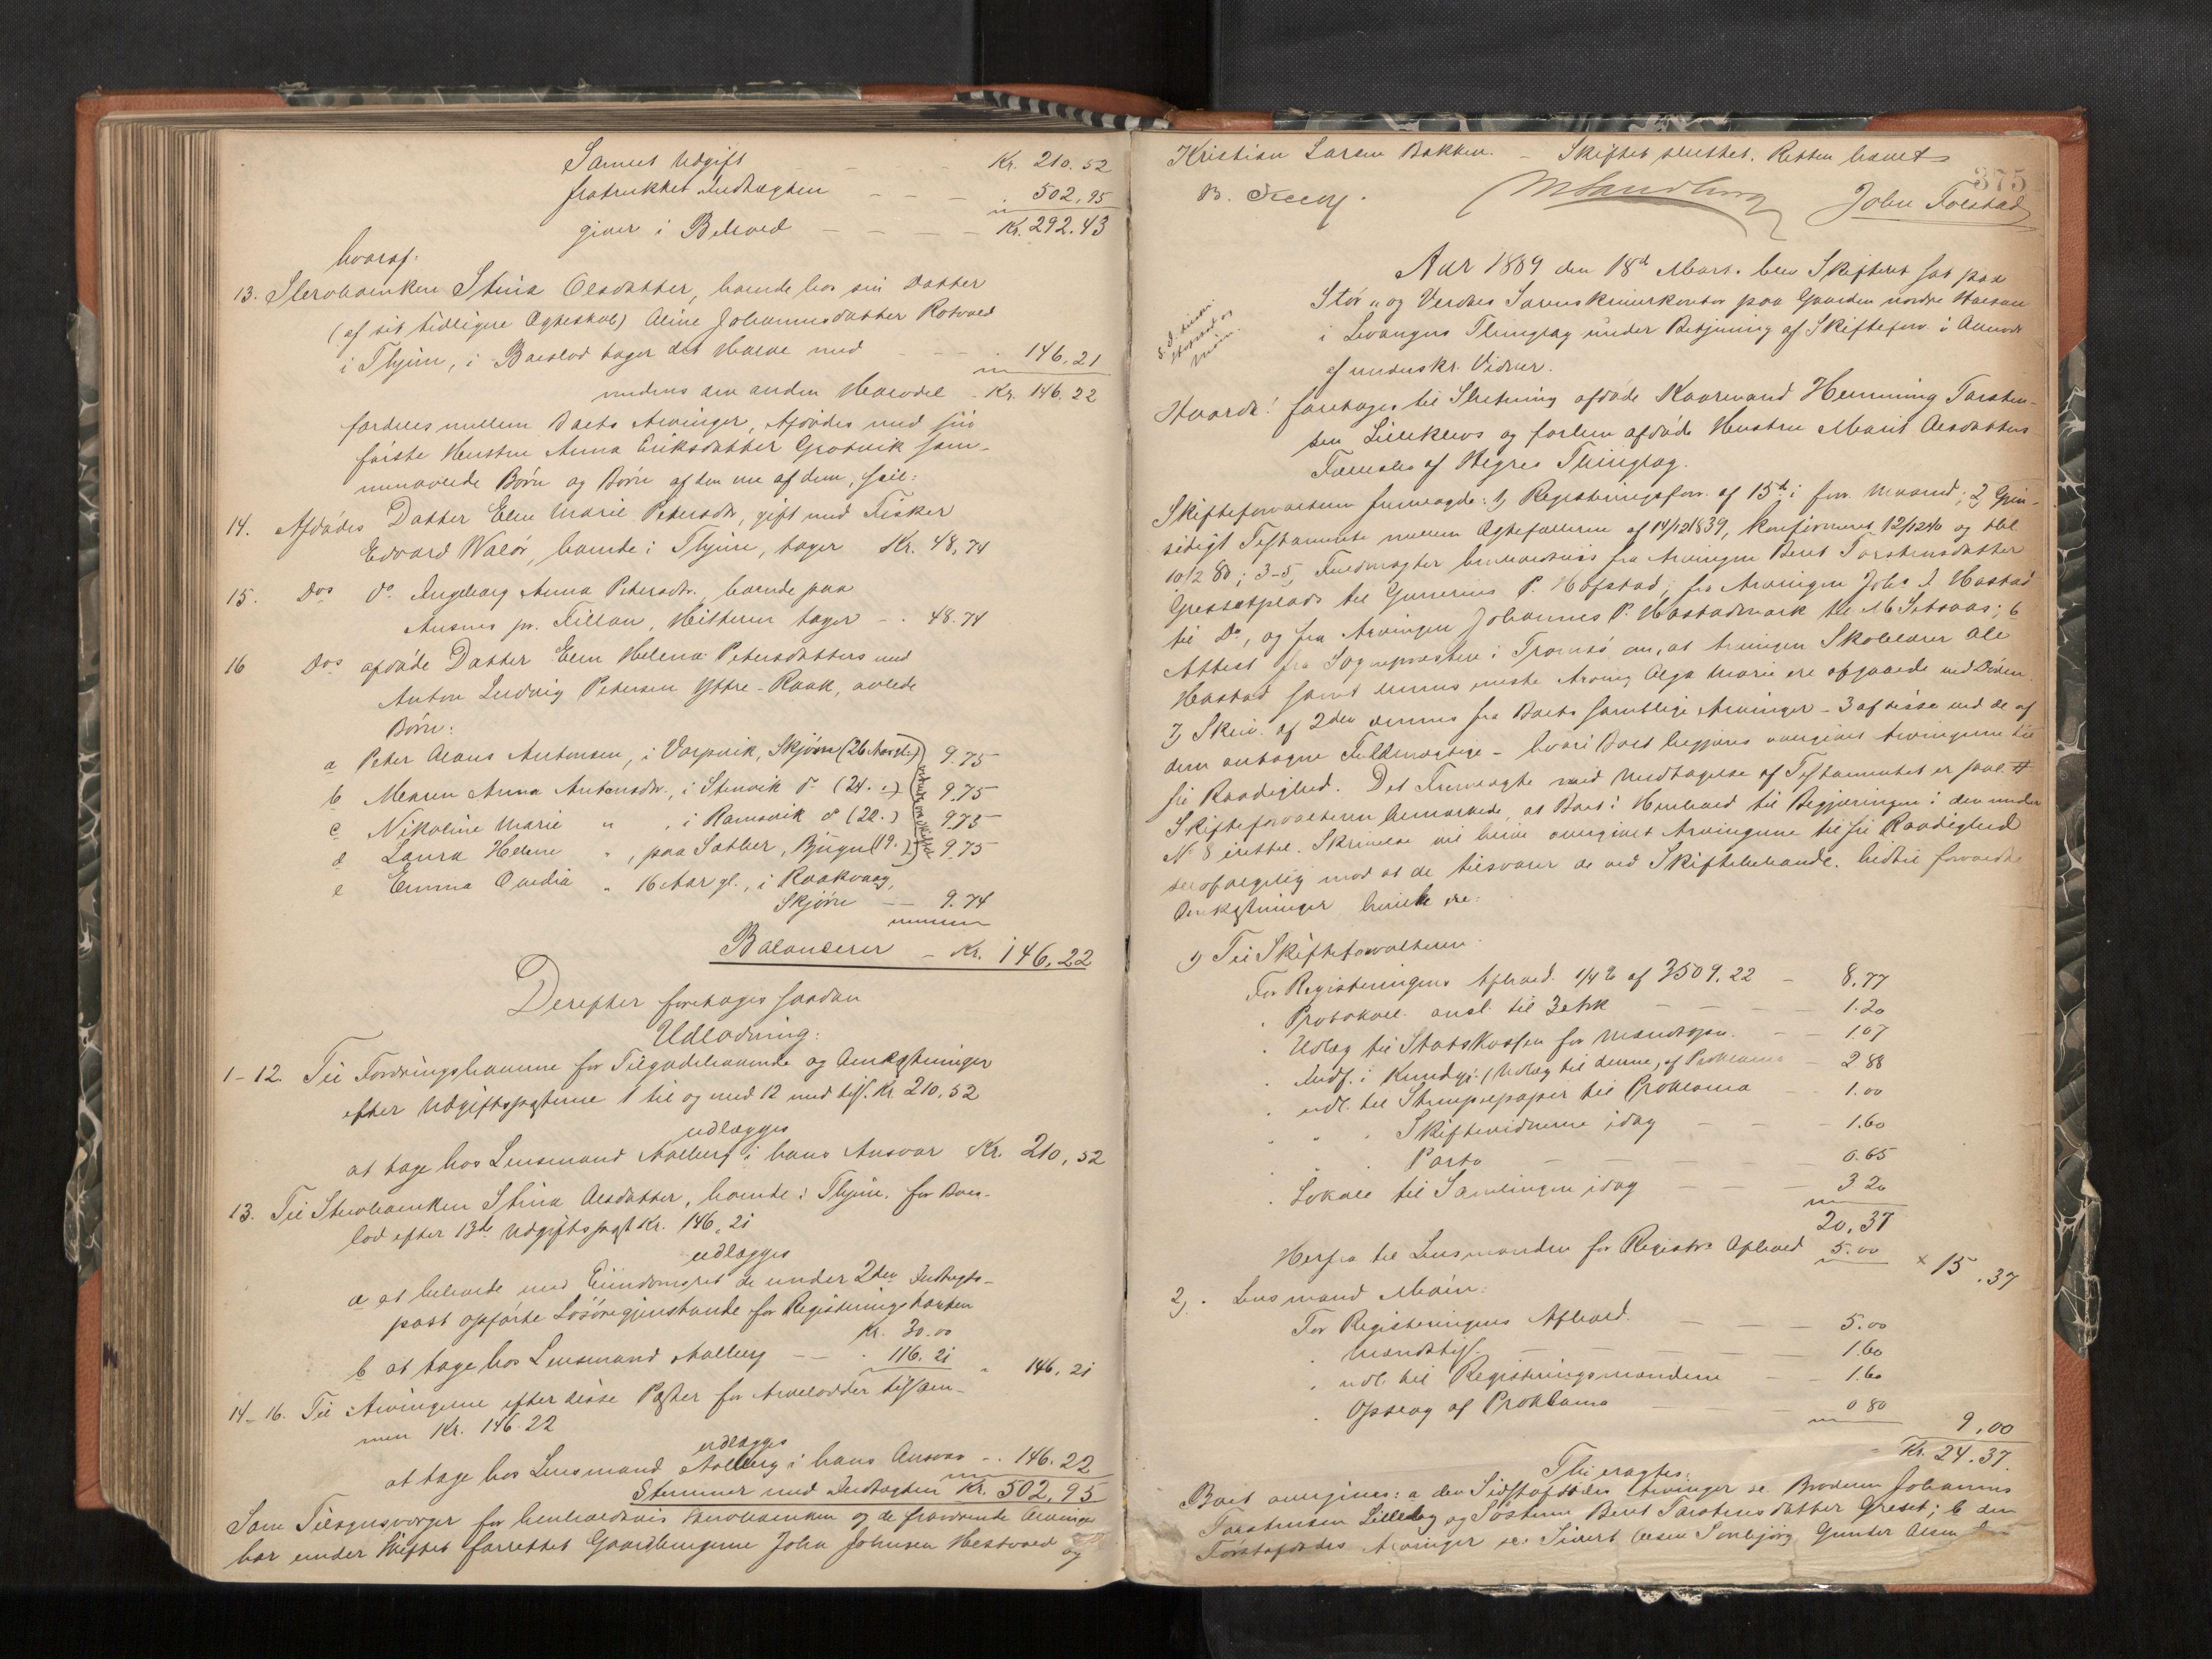 Samlet Udgift - - Kr. 210.52
fratrukket Indtægten - - - 502,95
giver i Behold - - - - Kr. 292.43
hvoraf:
13. Sterboenken Stina Olsdatter, boende hos sin Datter
(af sit tidligere Ægteskab) Aline Johannesdatter Rotvold
i Thjem, i Boeslod tager det Halve med - - - 146.21
medens den anden Halvdel - Kr. 146.22
fordeles mellem Boets Arvinger, Afdødes med sin
første Hustru Anna Eriksdatter Grotvik sam-
menavlede Børn og Børn af den ene af dem, saal:
14. Afdødes Datter Elen Marie Petersdtr, gift med Fisker
Edvard Walør, boende i Thjem, tager Kr. 48,74
15. Dos do Ingeborg Anna Petersdtr. boende paa
Ansnes pr. Fillan, Hitteren tager - . 48.74
16 Dos afdøde Datter Elen Helena Petersdatters med
Anton Ludvig Petersen Yttre-Raak, avlede
Børn:
a Peter Olaus Antonsen, i Vorpvik, Skjørn (26 Aar gl.) 9.75
b Maren Anna Antonsdtr., i Stenvik do (24. .) 9.75
c Nikoline Marie " , i Ramsvik do (22.) 9.75
d Laura Helene " , paa Sæther, Bjugn (19.) 9.75
e Emma Ovedia " 16 Aar gl., i Raakvaag,
Skjørn -- 9.74
Balancerer - Kr. 146,22
Derefter foretages saadan
Udlodning:
1-12. Til Fordringshaverne for Tilgodehavende og Omkostninger
efter Udgiftsposterne 1 til og med 12 med tils. Kr. 210,52
udlægges
at tage hos Lensmand Aalberg i hans Ansvar Kr. 210,52
13. Til Sterboenken Stina Olsdatter, boende i Thjem, for Boes-
lod efter 13de Udgiftspost Kr. 146,21
udlægges
a at beholde med Eiendomsret de under 2den Indtægts-
post opførte Løsøregjenstande for Registreringstaxten
Kr. 30.00
b at tage hos Lensmand Aalberg -- . 116.21 " 146,21
14-16. Til Arvingerne efter disse Poster for Arvelodder tilsam-
men Kr. 146.22
udlægges
at tage hos Lensmand Aalberg i hans Ansvar - . 146.22
Stemmer med Indtægten Kr. 502,95
Som Tilsynsværger for henholdsvis Sterboenken og de fraværende Arvinger
har under Skiftet forrettet Gaardbrugerne John Johnsen Hestvold og
Kristian Larsen Bakken. - Skiftet sluttet. Retten hævet
375
B. M Sandberg John Folstad
Aar 1889 den 18d Marts blev Skifteret sat paa
Stør- og Verdals Sorenskriverkontor paa Gaarden nordre
i Levangers Thinglag under Betjening af Skifteforv. i Ællevar
af underskr. Vidner.
Hvorda: foretages til Slutning afdøde Kaarmand Henning Torsten-
sen Lillekleves og forlem afdøde Hustru Marit Olsdatters
af Hegres Thinglag.
Skifteforvalteren fremlagde: 1, Registreringsforr. af 15d i forr. Maaned; 2, Gjen-
sidigt Testamente mellem Ægtefællerne af 14/12 1839, konfirmeret 12/12 40 og
10/2 80; 3-5, Fuldmagter henholdsvis fra Arvingen Berit Torstensdatter
Gressetplads til Gunerius P. Hofstad; fra Arvingen Johs J. Hastad
til Do, og fra Arvingen Johannes P. Hastadmark til M Setsaas; 6
Attest fra Sognepresten i Tromsø om, at Arvingen Skolelærer Ole
Hastad samt dennes eneste Arving Olga Marie ere afgaaede ved Døden.
7, Skriv. af 2den dennes fra Boets samtlige Arvinger - 3 af disse ved de af
dem antagne Fuldmægtige - hvori Boet begjæres overgivet Arvingerne til
fri Raadighed. Det Fremlagte med Undtagelse af Testamentet er saal.
Skifteforvalteren bemærkede, at Boet i Henhold til Begjæringen i den under
No 8 irettel. Skrivelse vil blive overgivet Arvingerne til fri Raadighed
selvfølgelig mod at de tilsvarer de ved Skiftebehandl. hidtil forvoldte
Omkostninger hvilke ere:
1) Til Skifteforvalteren:
For Registreringens Afhold. 1/4 % af 3509.22 - 8.77
. Protokoll. ansl. til 3 Ark - - - 1.20
. Udlæg til Statskassen for Mandtpn. - - 1.07
. Indf. i Kundgj. (Udlæg til denne, af Proklama - 2 88
. udl. til Stempelpapir til Proklama - 1.00
" " . Skiftevidnerne idag - - - 1.60
. " . Porto - - - - - 0.65
. Lokale til Samlingen idag - - - 3 20
20,37
Herfra til Lensmanden for Registrs Afhold 5.00 × 15.37
2, . Lensmand Moin:
For Registreringens Afhold. - - - 5.00
. Mandtls. - - - - - 1.60
. udl. til Registreringsmændene - - 1.60
. Opslag af Proklama - - - 0 80 9,00
- Kr. 24.37.
Thi eragtes:
Boet overgives: a den Sidstafdødes Arvinger se. Broderen Johannes
Torstensen Lillekleg og Søsteren Berit Torstensdatter Greset; b den
Førstafdødes Arvinger se. Sivert Olsen Gunder Olsen